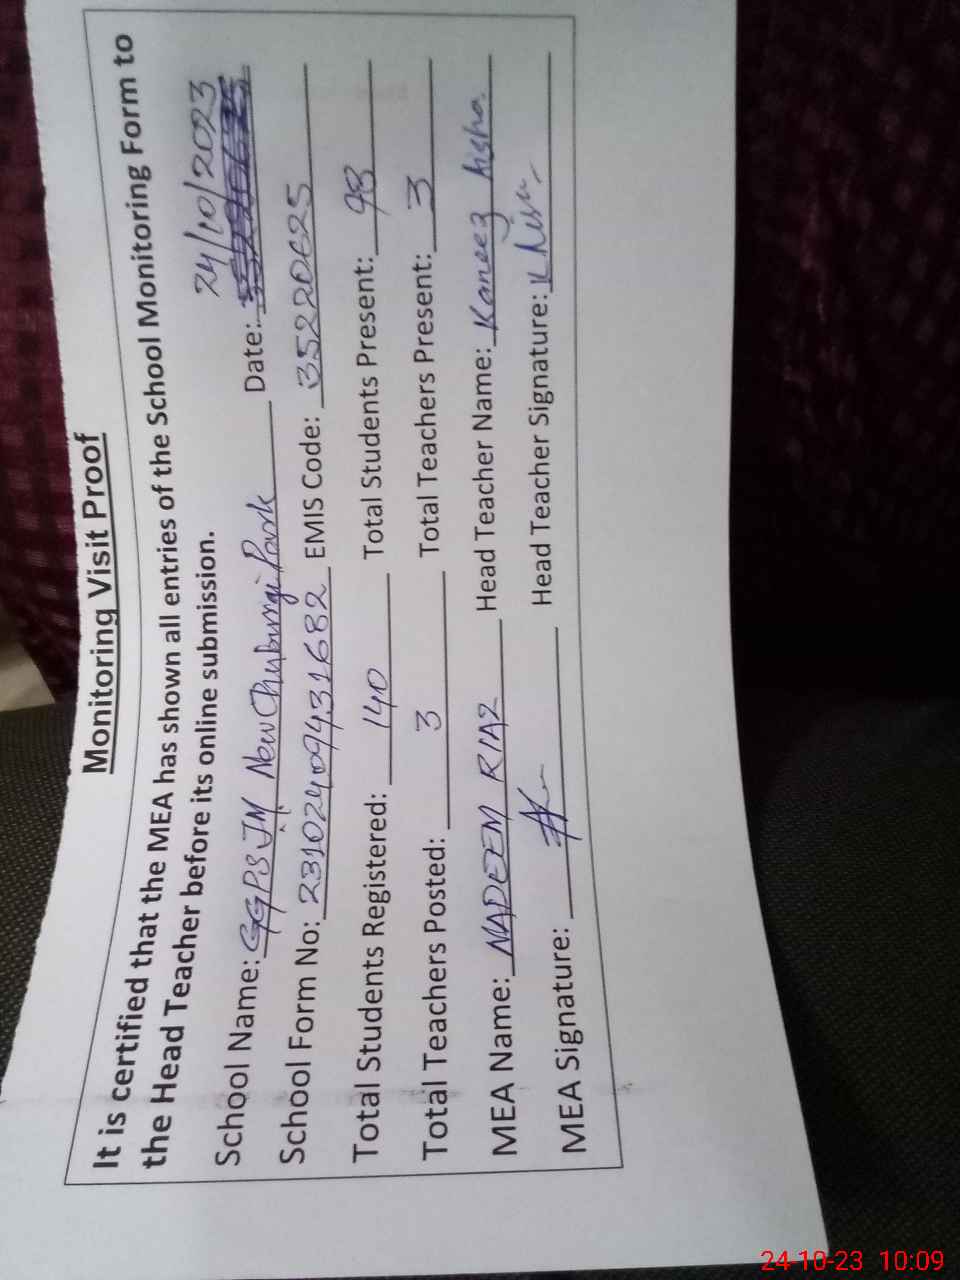 Monitoring Visit Proof
It is certified that the MEA has shown all entries of the School Monitoring Form to
the Head Teacher before its online submission.
24/10/2023
School Name: GGPS JM New Chuburgi Park Date:
School Form No: 23102409431682 EMIS Code: 35220625
Total Students Registered: 140 Total Students Present: 98
Total Teachers Posted: 3 Total Teachers Present: 3
MEA Name: NADEEM RIAZ Head Teacher Name: Kaneez Aisha
MEA Signature: Head Teacher Signature:
24-10-23 10:09